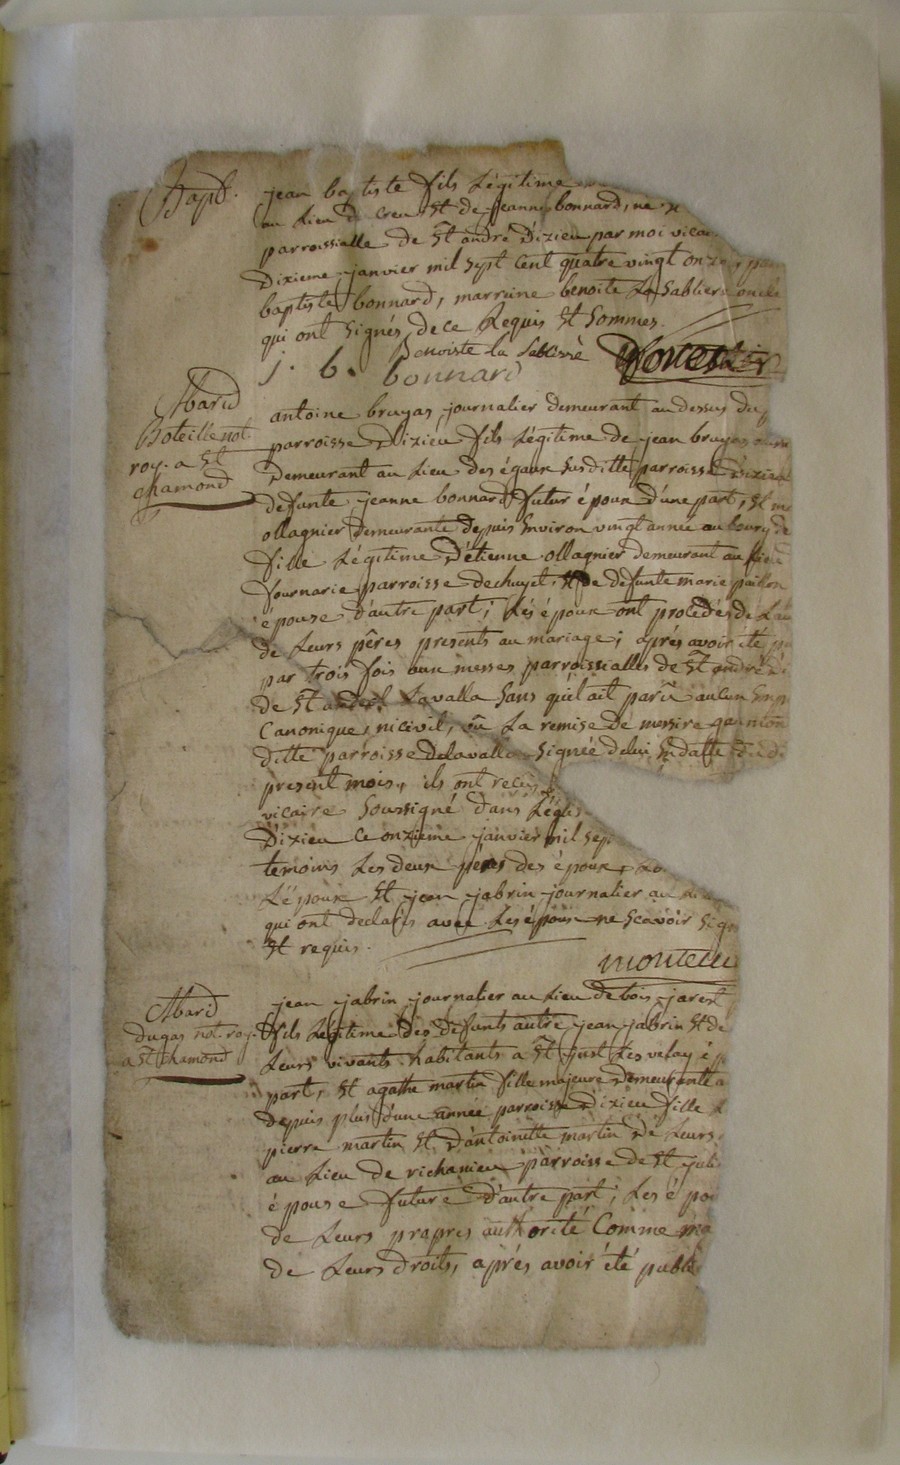 Bapt.
jean baptiste fils Légitime
au Lieu du creu Et de jeanne bonnard, né
parroissialle de St andré Dizieu par moi vicai
Dixieme janvier mil sept cent quatre vingt onze
baptiste bonnard, marraine benoite La Sabliere
qui ont signés de ce Requis Et Sommes.
benoiste la sabliere
j. b. bonnard
Marid
Boteille not.
roy. a St
chamond
antoine bruyas journalier demeurant au dessus du
parroisse Dizieu fils Légitime de jean bruyas
Demeurant au Lieu des égaux susditte parroisse Dizieu
defunte jeanne bonnard futur époux d'une part, Et
ollagnier Demeurante depuis Environ vingt année au bourg de
fille Légitime D'étienne ollagnier demeurant au Lieu
fournarie parroisse de chuyet Et de defunte marie
épouse d'autre part; Les époux ont procedés de L'au
de Leurs pères presents au mariage; après avoir été pu
par trois fois aux messes parroissialles de St andré Di
de St Lavalla sans qu'il ait parû aucun Emp
Canonique, ni civil, vû La remise de messire
ditte parroisse de Lavalla signée de lui, En datte du
present mois, ils ont reçus
vicaire soussigné dans L'églis
Dizieu ce onzieme janvier mil sept
temoins Les deux peres des époux,
L'époux Et jean jabrin journalier au
qui ont declarés avec Les époux ne scavoir sign
Et requis.
Marid
dugas not. roy.
a St chamond
jean jabrin journalier au Lieu de bois jarest
fils Légitime des defunts autre jean jabrin Et de
Leurs vivants habitants a St just Les velay é
part, Et agathe martin fille majeure Demeurante a
depuis plus d'une année parroisse Dizieu fille L
pierre martin Et D'antoinette martin De Leurs
au Lieu de richanieu parroisse de St juli
épouse future D'autre part; Les épou
de Leurs propres authorité Comme ma
de Leurs droits, après avoir été publi